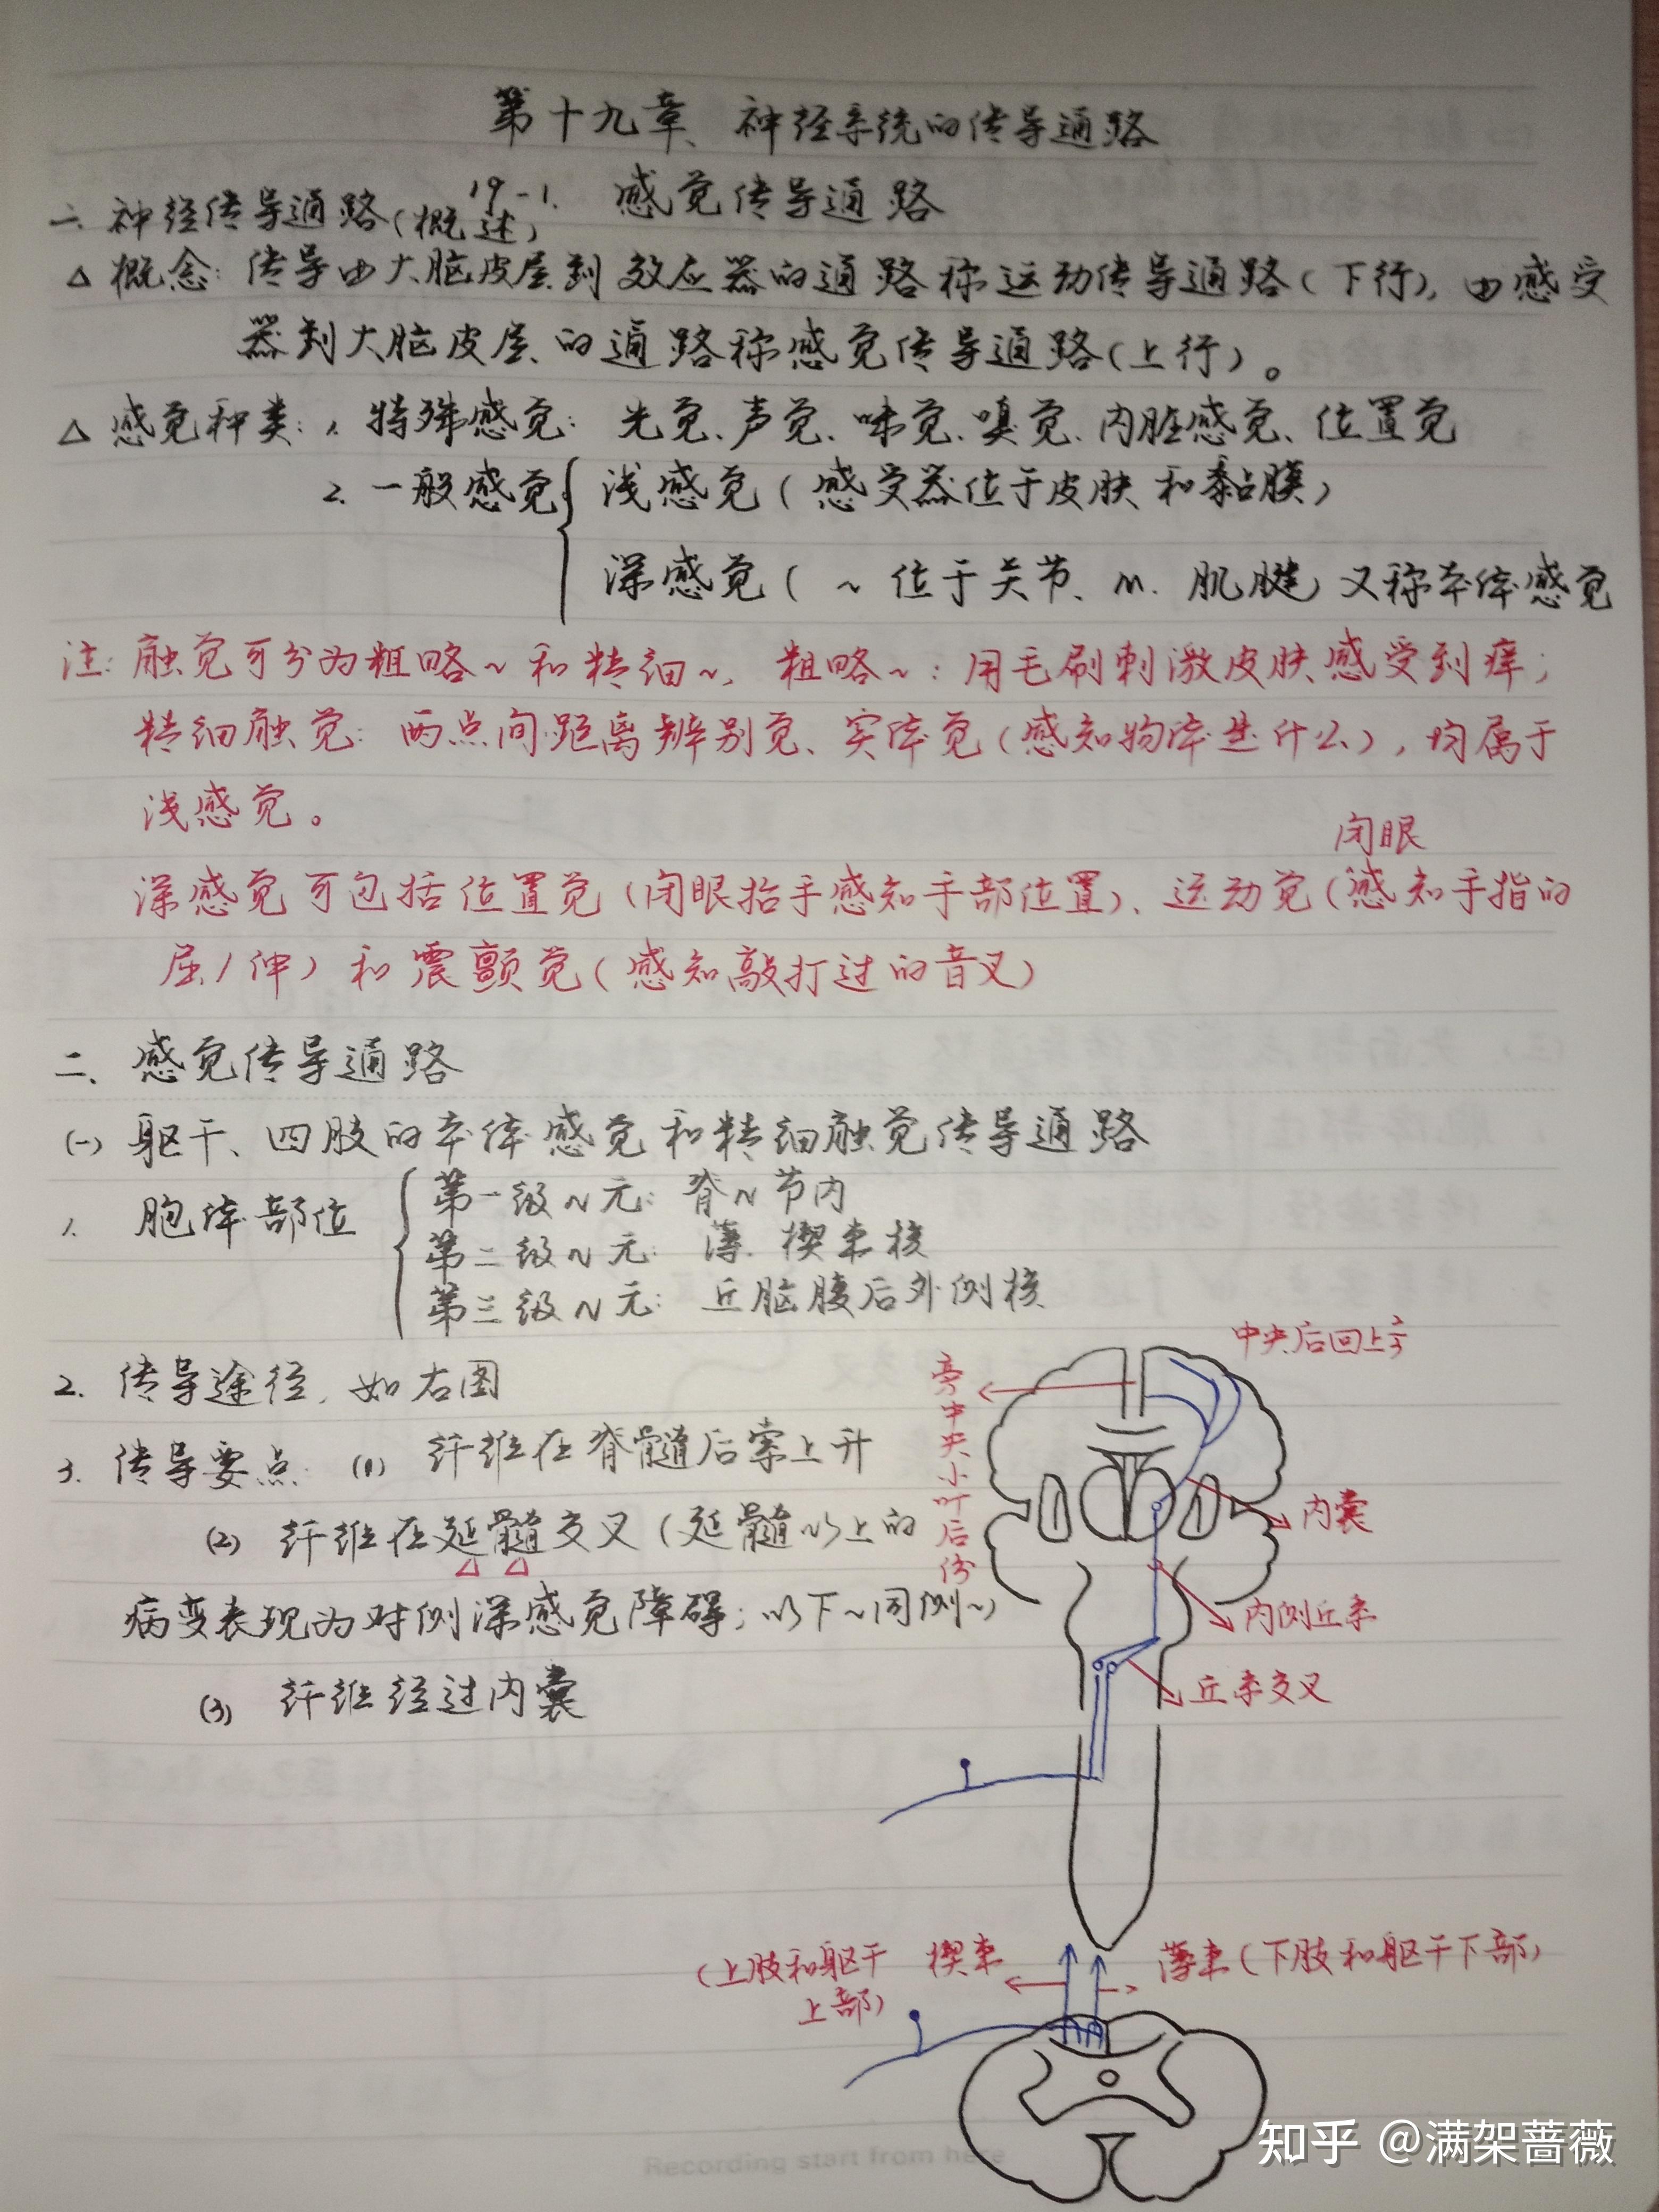 第十九章、神经系统的传导通路
19-1. 感觉传导通路
一、神经传导通路(概述)
△ 概念: 传导由大脑皮层到效应器的通路称运动传导通路(下行), 由感受
器到大脑皮层的通路称感觉传导通路(上行)。
△ 感觉种类: 1. 特殊感觉: 光觉、声觉、味觉、嗅觉、内脏感觉、位置觉
2. 一般感觉{ 浅感觉(感受器位于皮肤和黏膜)
深感觉( ~ 位于关节、m. 肌腱) 又称本体感觉
注: 触觉可分为粗略~和精细~, 粗略~: 用毛刷刺激皮肤感受到痒;
精细触觉: 两点间距离辨别觉、实体觉(感知物体是什么), 均属于
浅感觉。
闭眼
深感觉可包括位置觉(闭眼抬手感知手部位置)、运动觉(感知手指的
屈/伸)和震颤觉(感知敲打过的音叉)
二、感觉传导通路
(一) 躯干、四肢的本体感觉和精细触觉传导通路
1. 胞体部位
第一级N元: 脊N节内
第二级N元: 薄.楔束核
第三级N元: 丘脑腹后外侧核
2. 传导途径, 如右图
3. 传导要点: (1) 纤维在脊髓后索上升
(2) 纤维在延髓交叉(延髓以上的
△ △
病变表现为对侧深感觉障碍; 以下~同侧~)
(3) 纤维经过内囊
中央后回上2/3
旁中央小叶后份
内囊
内侧丘系
丘系交叉
(上肢和躯干 楔束
上部)
薄束(下肢和躯干下部)
Recording start from here
知乎 @满架蔷薇